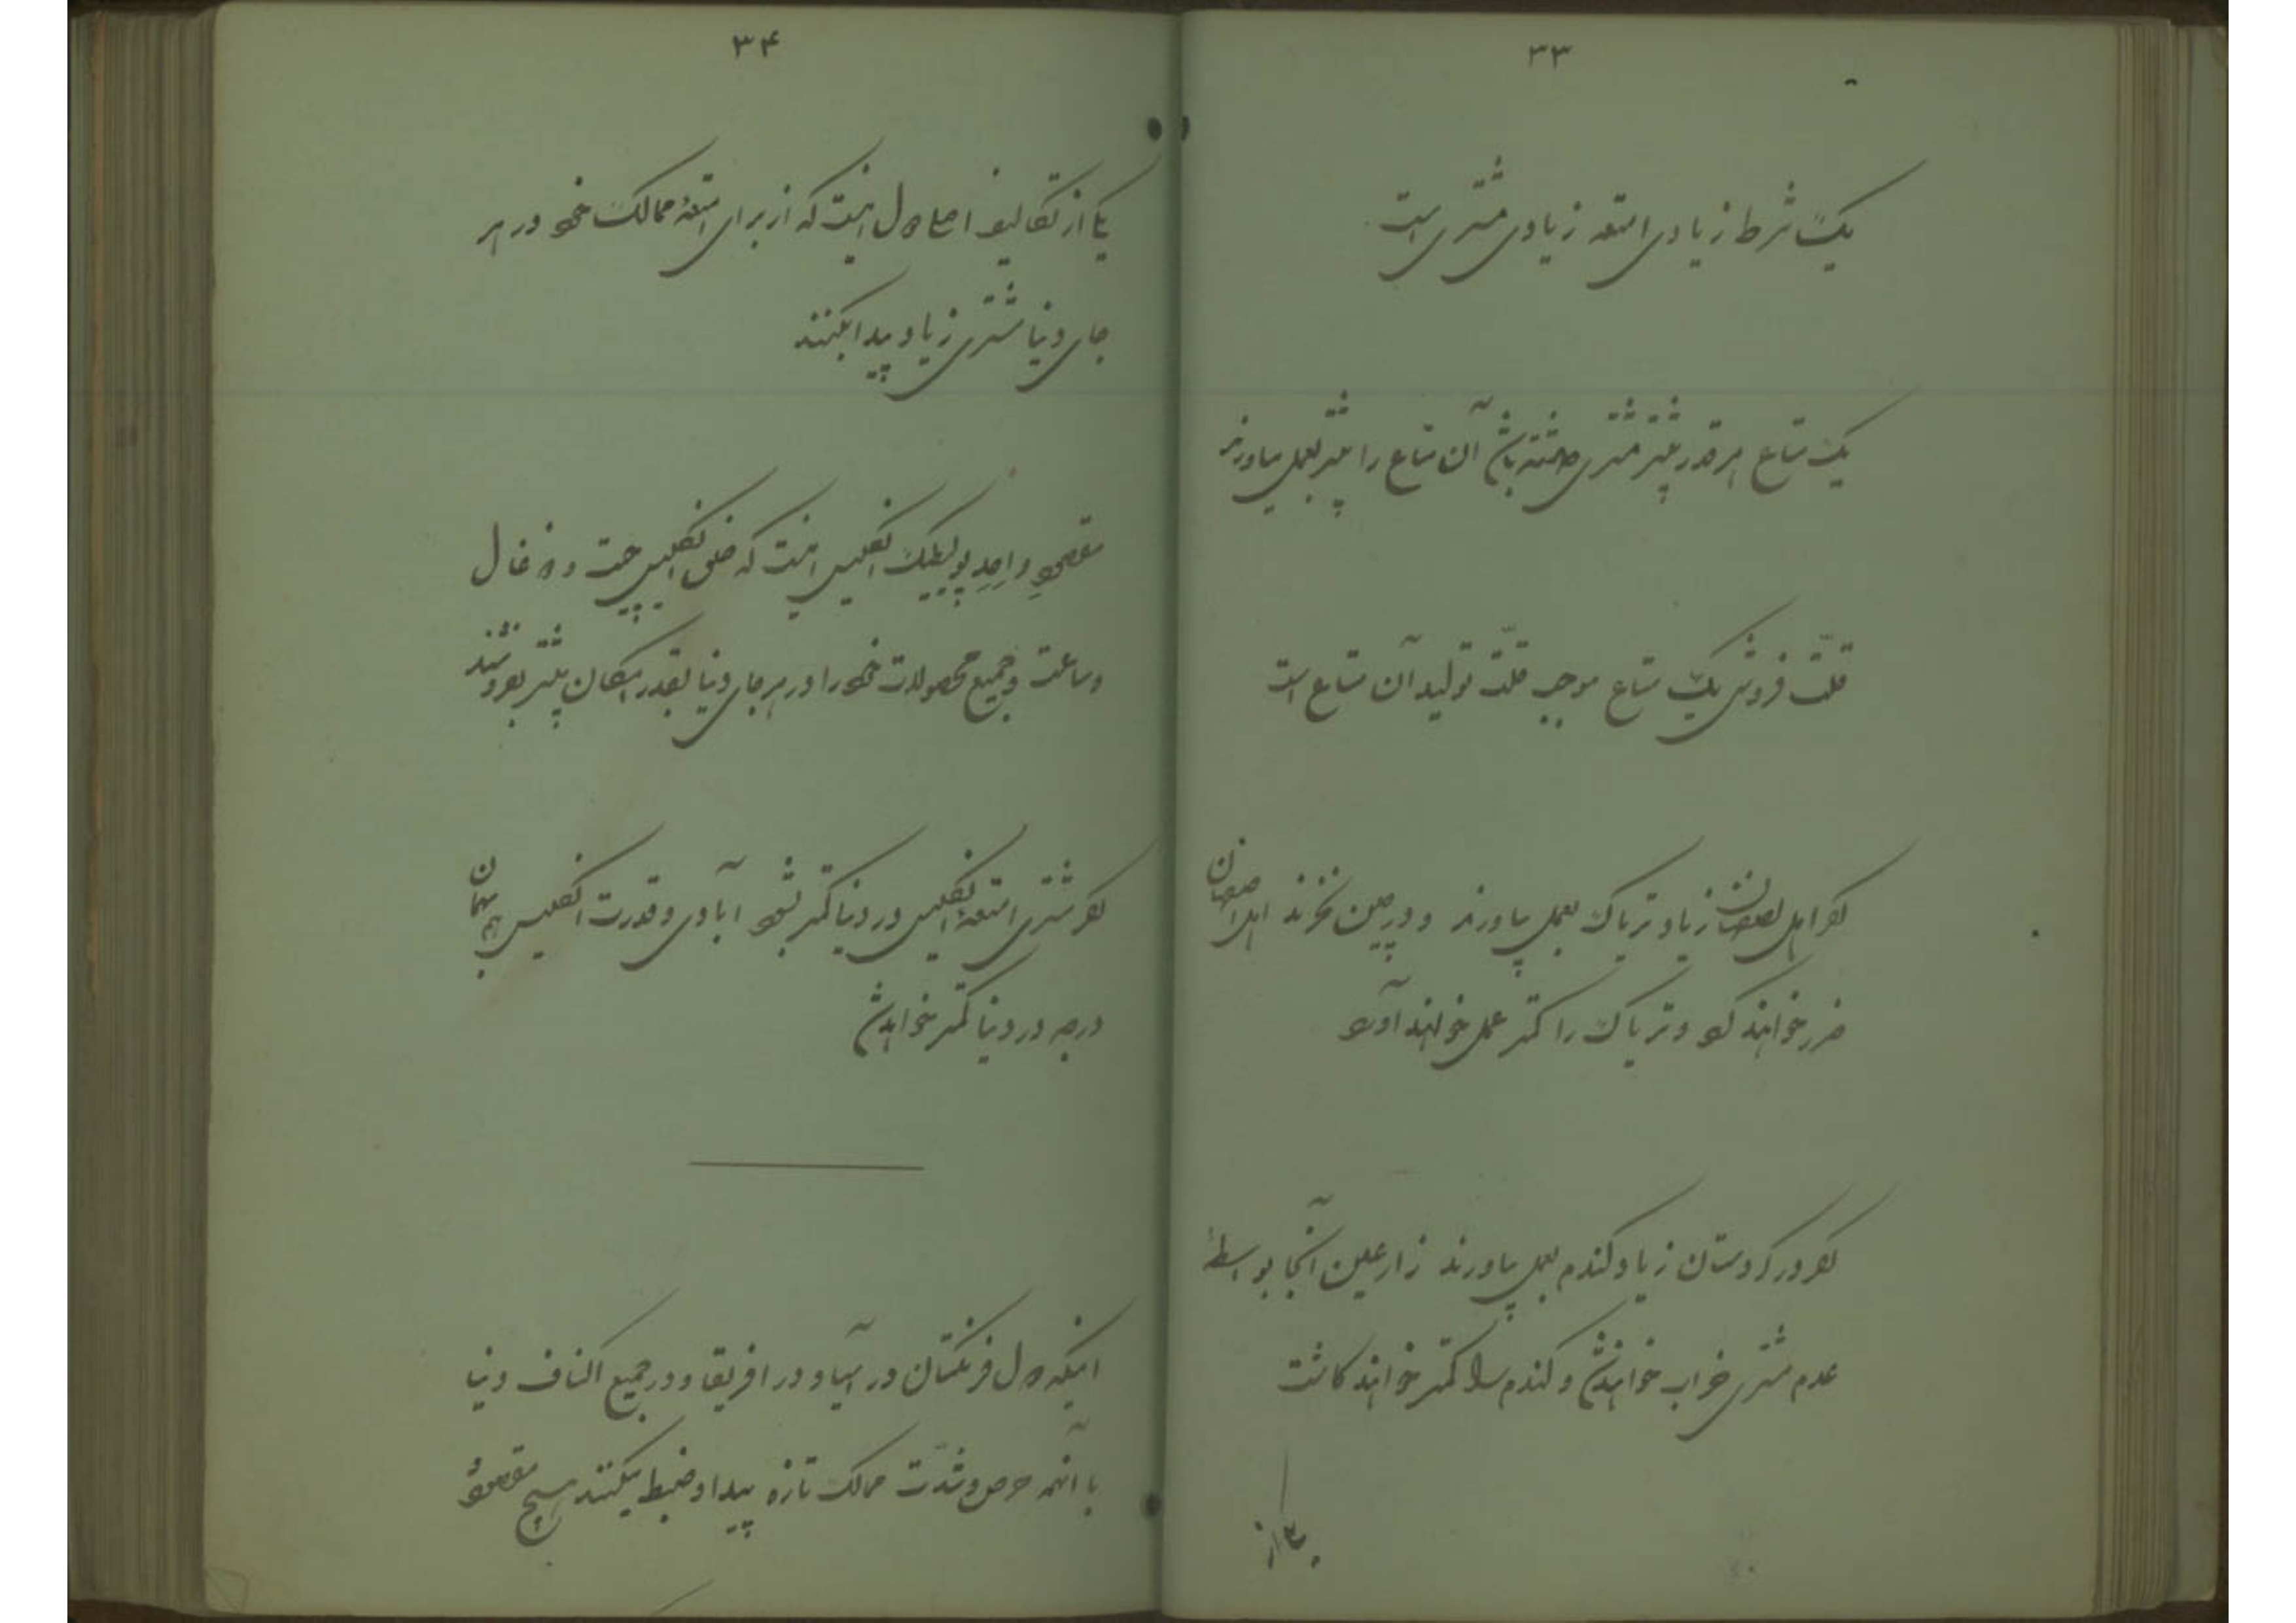 ۳۳
یک شرط زیادی امتعه زیادی مشتری است
یک متاع هر قدر بیشتر مشتری داشته باشد آن متاع را بیشتر بعمل میاورند
قلّت فروش یک متاع موجب قلّت تولید آن متاع است
اگر اهل اصفهان زیاد تریاک بعمل بیاورند و در چین نخرند اهل اصفهان
ضرر خواهند کرد و تریاک را کمتر عمل خواهند آورد
اگر در کردستان زیاد گندم بعمل بیاورند زارعین آنجا بواسطهٔ
عدم مشتری خراب خواهند شد و گندم را کمتر خواهند کاشت
۳۴
یکی از تکالیف اصلی دول اینست که از برای امتعهٔ ممالک خود در هر
جای دنیا مشتری زیاد پیدا بکنند
مقصودِ واحدِ پولیطیک انگلیس اینست که خلق انگلیس چیت و ذغال
و ساعت و جمیع محصولات خود را در هر جای دنیا بقدر امکان بیشتر بفروشند
اگر مشتری امتعهٔ انگلیس در دنیا کمتر بشود آبادی و قدرت انگلیس هم بهمان
درجه در دنیا کمتر خواهد شد
اینکه دول فرنگستان در آسیا و در افریقا و در جمیع اکناف دنیا
با آنهمه حرص و شدّت ممالک تازه پیدا و ضبط میکنند هیچ مقصود